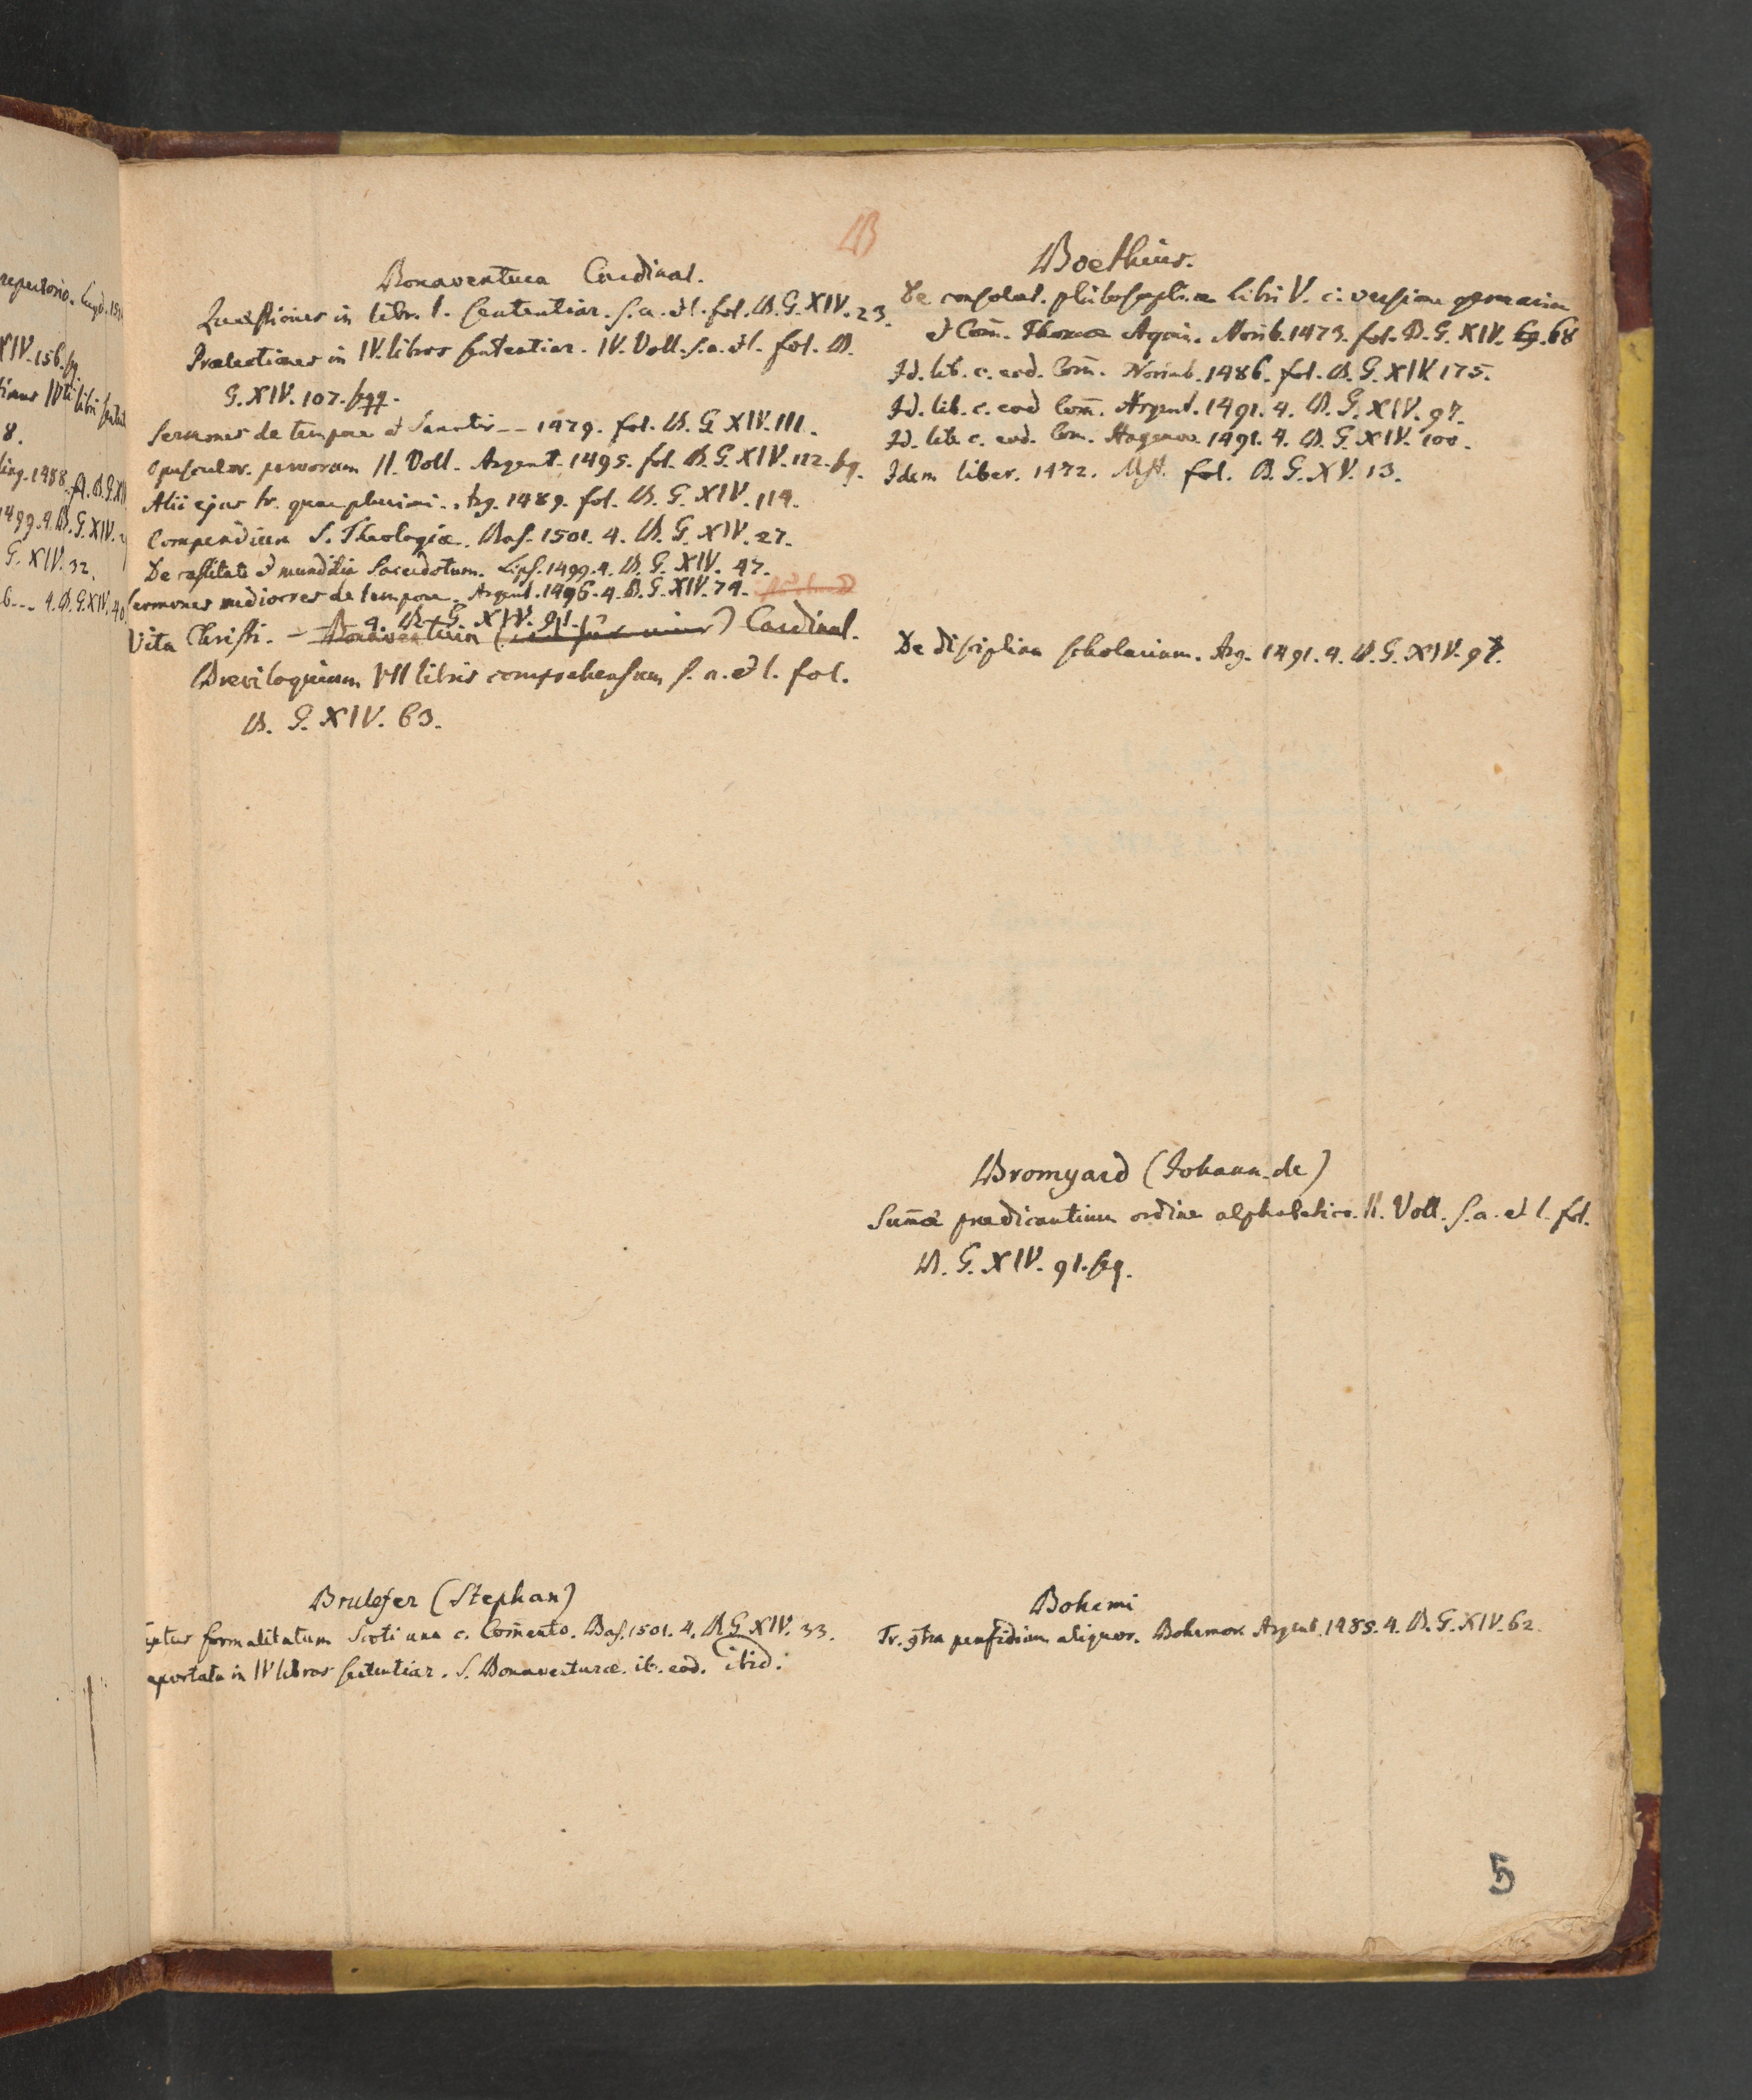 B
Bonaventura Cardinal.
Quaestiones in libr. I. Sententiar. s. a. et l. fol. B. G. XIV. 23.
Praelectiones in IV. libros sententiar. IV. Voll. s. a. et l. fol. B.
G. XIV. 107. sqq.
Sermones de tempore et Sanctis -- 1479. fol. B. G. XIV. 111.
Opuscular. parvorum II. Voll. Argent. 1495. fol. B. G. XIV. 112. sq.
Alii ejus tr. quam plurimi. Arg. 1489. fol. B. G. XIV. 114.
Compendium S. Theologiæ. Bas. 1501. 4. B. G. XIV. 27.
De castitate et munditia Sacerdotum. Lips. 1499. 4. B. G. XIV. 47.
Sermones mediocres de tempore. Argent. 1496. 4. B. G. XIV. 74.
Vita Christi. - 4. B. G. XIV. 91.
Bonaventura Cardinal.
Breviloquium VII libris comprehensum s. a. et l. fol.
B. G. XIV. 63.
Boethius.
De consolat. philosophiæ Libri V. c. versione germanica
et Com̄. Thomæ Aquin. Norib. 1473. fol. B. G. XIV. 69. 68
Id. lib. c. eod. Com̄. Norimb. 1486. fol. B. G. XIV 175.
Id. lib. c. eod Com̄. Argent. 1491. 4. B. G. XIV. 97.
Id. lib. c. eod. Com. Hagenov. 1491. 4. B. G. XIV. 100.
Idem liber. 1472. Mst. fol. B. G. XV. 13.
De disciplina scholarium. Arg. 1491. 4. B. G. XIV. 97.
Bromyard (Johann. de)
Sum̄a praedicantium ordine alphabetico. II. Voll. s. a. et l. fol.
B. G. XIV. 91. sq.
Brulefer (Stephan)
formalitatum Scoti una c. Com̄ento. Bas. 1501. 4. B. G. XIV. 33.
in IV libros sententiar. S. Bonaventuræ. ib. eod. ibid.
Bohemi
Tr. contra perfidiam aliquor. Bohemor. Argent. 1485. 4. B. G. XIV. 62.
5
repertorio. Lugd.
XIV. 156. sq.
8.
1488. A. B. G. XIV
1499. 4. B. G. XIV.
G. XIV. 32.
4. B. G. XIV. 40